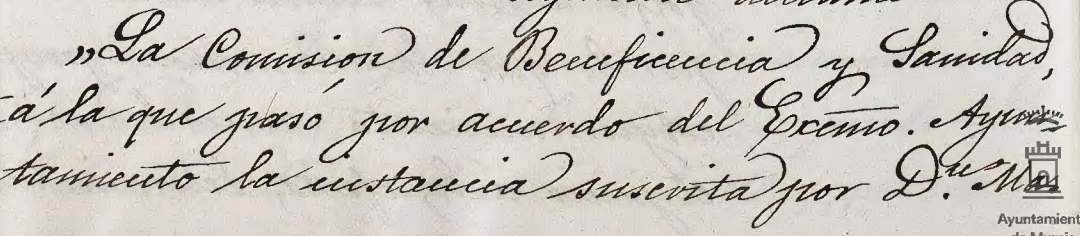 „La Comision de Beneficencia y Sanidad,
á la que pasó por acuerdo del Excmo. Ayun-
tamiento la instancia suscrita por D.n
Ayuntamient
de Murcia